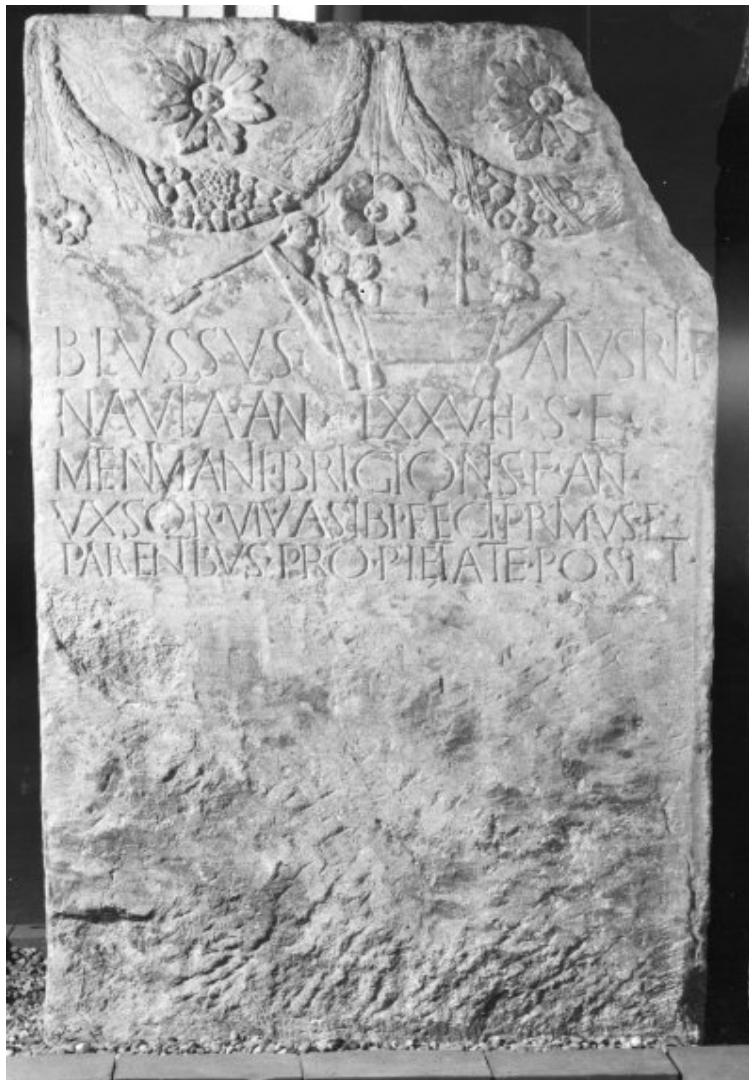 BLVSSVS ATVSIRI F
NAVTA·AN·LXXV·H·S·E·
MENIMANI·BRIGIONIS·F·AN·
VXSOR·VIVA·SIBI·FECIT·PRIMVS·F
PARENTIBVS·PRO·PIETATE·POSIT·